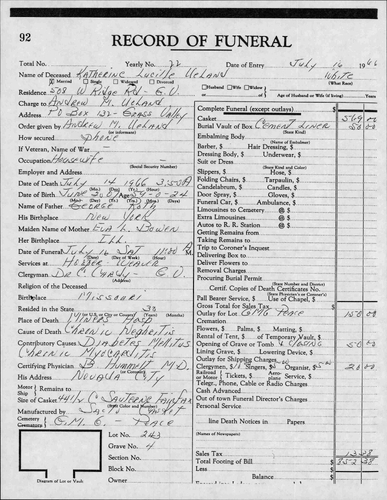 92
RECORD OF FUNERAL
Total No. Yearly No. 72 Date of Entry July 16 1966
Name of Deceased Katherine Lucille Ueland White
Married Single Widowed Divorced Husband Wife Widow (What Race)
Residence 508 W Ridge Rd - G.V. Age of Husband or Wife (if living) Years
Charge to Andrew M. Ueland
Address PO Box 132 - Grass Valley
Order given by Andrew M. Ueland
How secured Phone
If Veteran, Name of War
Occupation Housewife (Social Security Number)
Employer and Address
Date of Death July 14 1966 3:55 A
Date of Birth June 20
Name of Father George Rath
His Birthplace New York
Maiden Name of Mother Eva L. Bowen
Her Birthplace Ill.
Date of Funeral July 16 Sat 11:00 A
(Date) (Day of Week) (Hour)
Services at Hooper Weaver
Clergyman Dr C. Carly - G.V.
Religion of the Deceased
Birthplace Missouri
Resided in the State 30
Place of Death Miners Hosp
Cause of Death Chronic Nephritis
Contributory Causes Diabetes Melitus
Chronic Myocarditis
Certifying Physician B Hummelt M.D.
His Address Nevada City
Motor Remains to
Ship
Size of Casket
Manufactured by Casket
Cemetery
Crematory
Lot No. 243
Grave No. 4
Section No.
Block No.
Owner
Diagram of Lot or Vault
Complete Funeral (except outlays) $
Casket 569 00
Burial Vault or Box Cement Liner 50 00
(State Kind)
Embalming Body
(Name of Embalmer)
Barber, $ Hair Dressing, $
Dressing Body, $ Underwear, $
Suit or Dress
(State Kind and Color)
Slippers, $ Hose, $
Folding Chairs, $ Tarpaulin, $
Candelabrum, $ Candles, $
Door Spray, $ Gloves, $
Funeral Car, $ Ambulance, $
Limousines to Cemetery @ $
Extra Limousines @ $
Autos to R. R. Station @ $
Getting Remains from
Taking Remains to
Trip to Coroner's Inquest
Delivering Box to
Deliver Flowers to
Removal Charges
Procuring Burial Permit
Certif. Copies of Death Certificates No.
Pall Bearer Service, $ Use of Chapel, $
Gross Total for Sales Tax
Outlay for Lot 150 00
Cremation
Flowers, $ Palms, $ Matting, $
Rental of Tent, $ of Temporary Vault, $
Opening of Grave or Tomb & Closing 50 00
Lining Grave, $ Lowering Device, $
Outlay for Shipping Charges
Clergymen, $ Singers, $ Organist, $ 20 00
Telegr., Phone, Cable or Radio Charges
Cash Advanced
Out of town Funeral Director's Charges
Personal Service
line Death Notices in Papers
(Names of Newspapers)
Sales Tax
Total Footing of Bill $
Less
Balance $